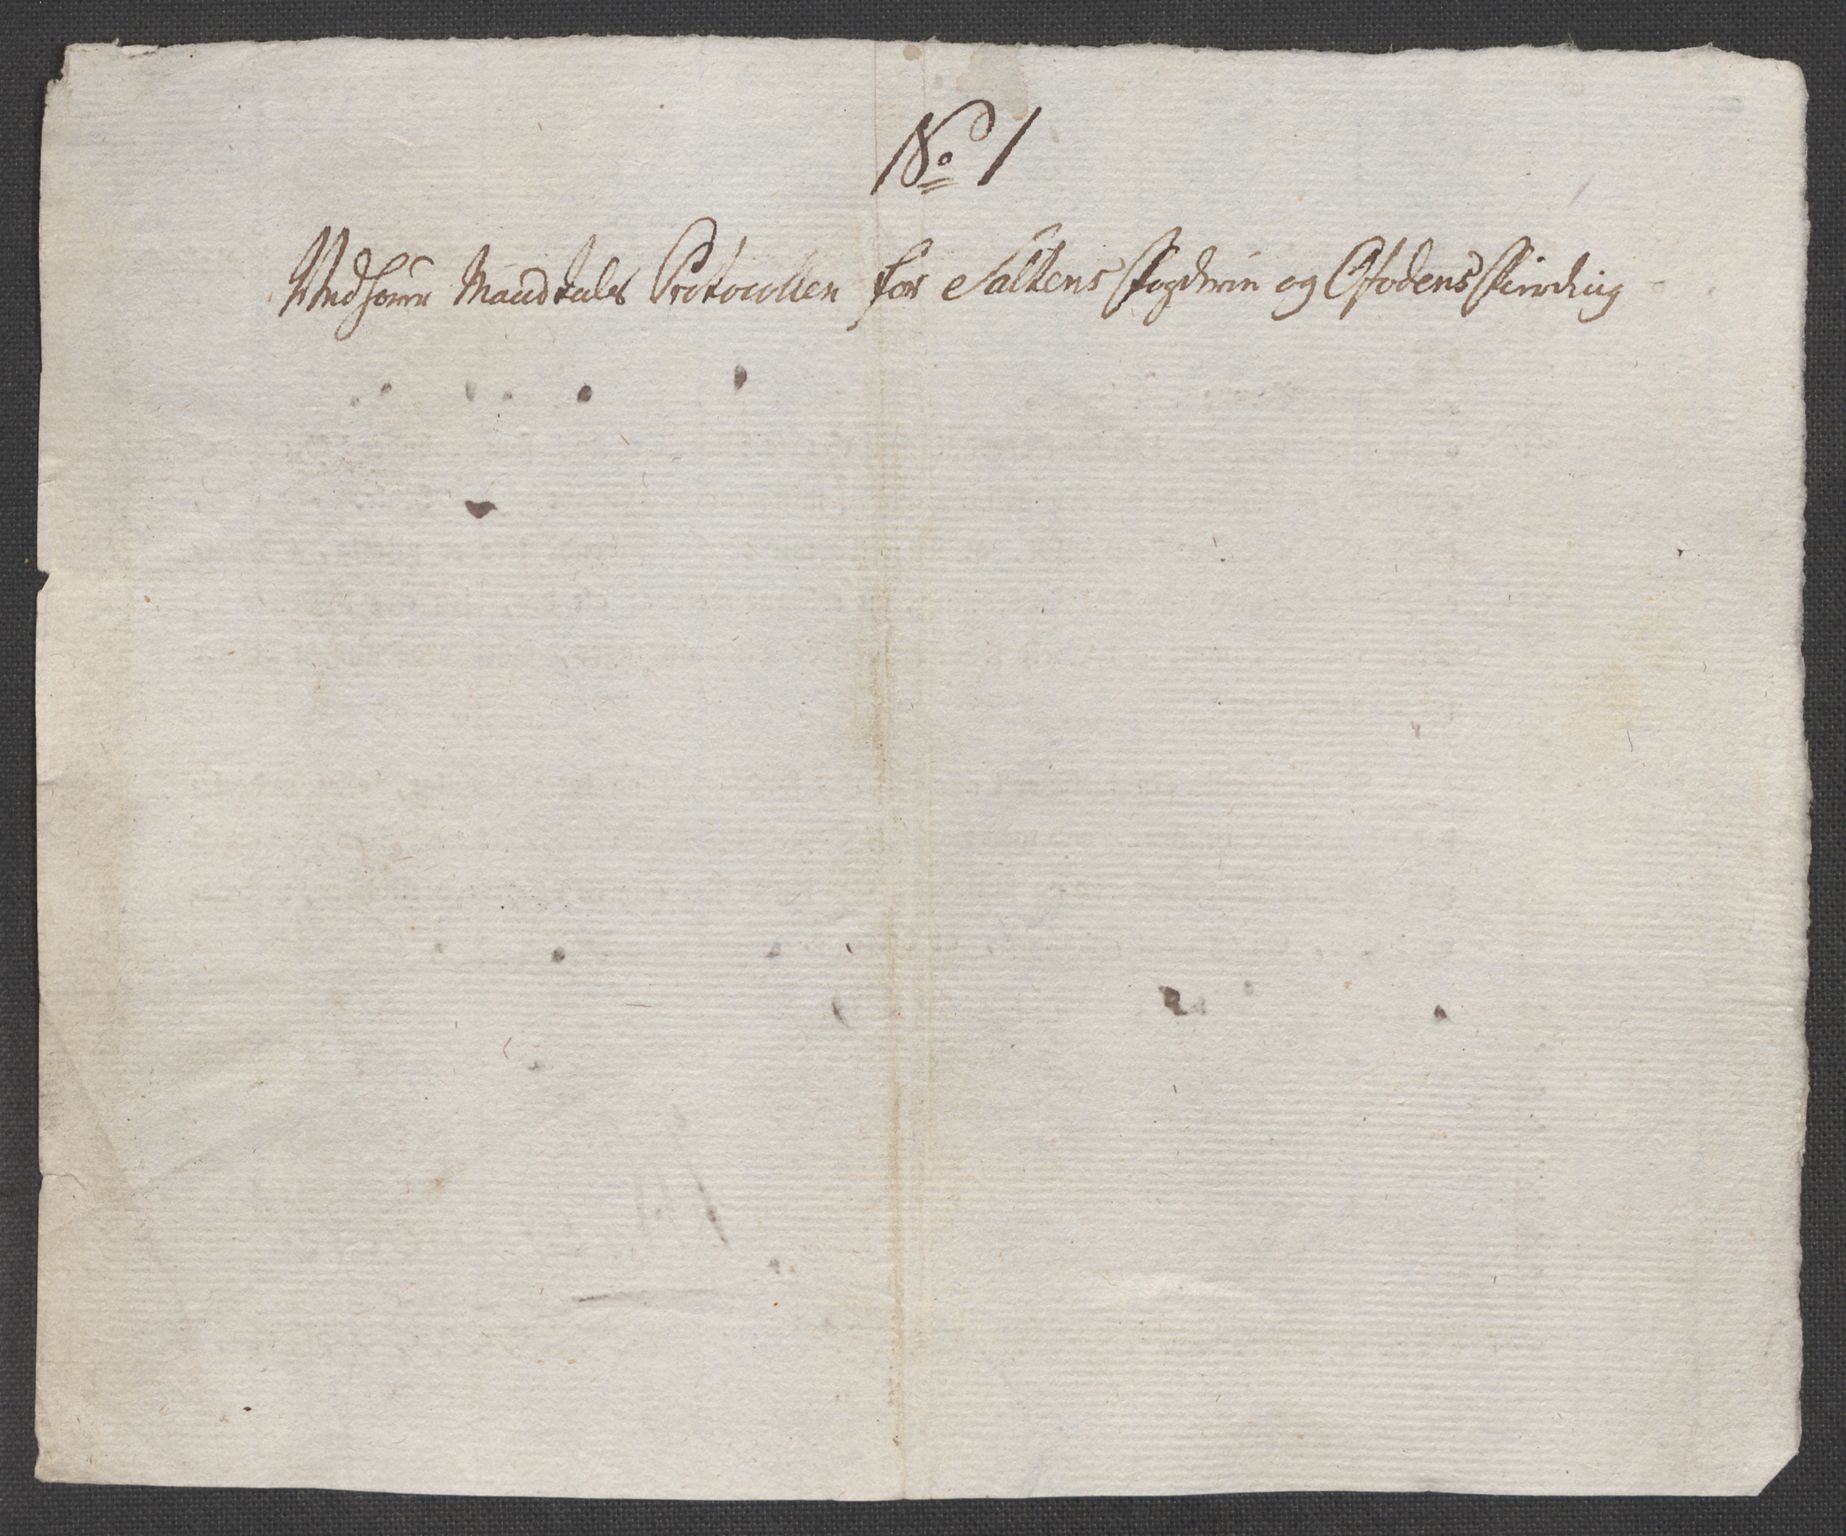 No 1
Mandtals Protocollen for Saltens fogderie og Ofodens fierding